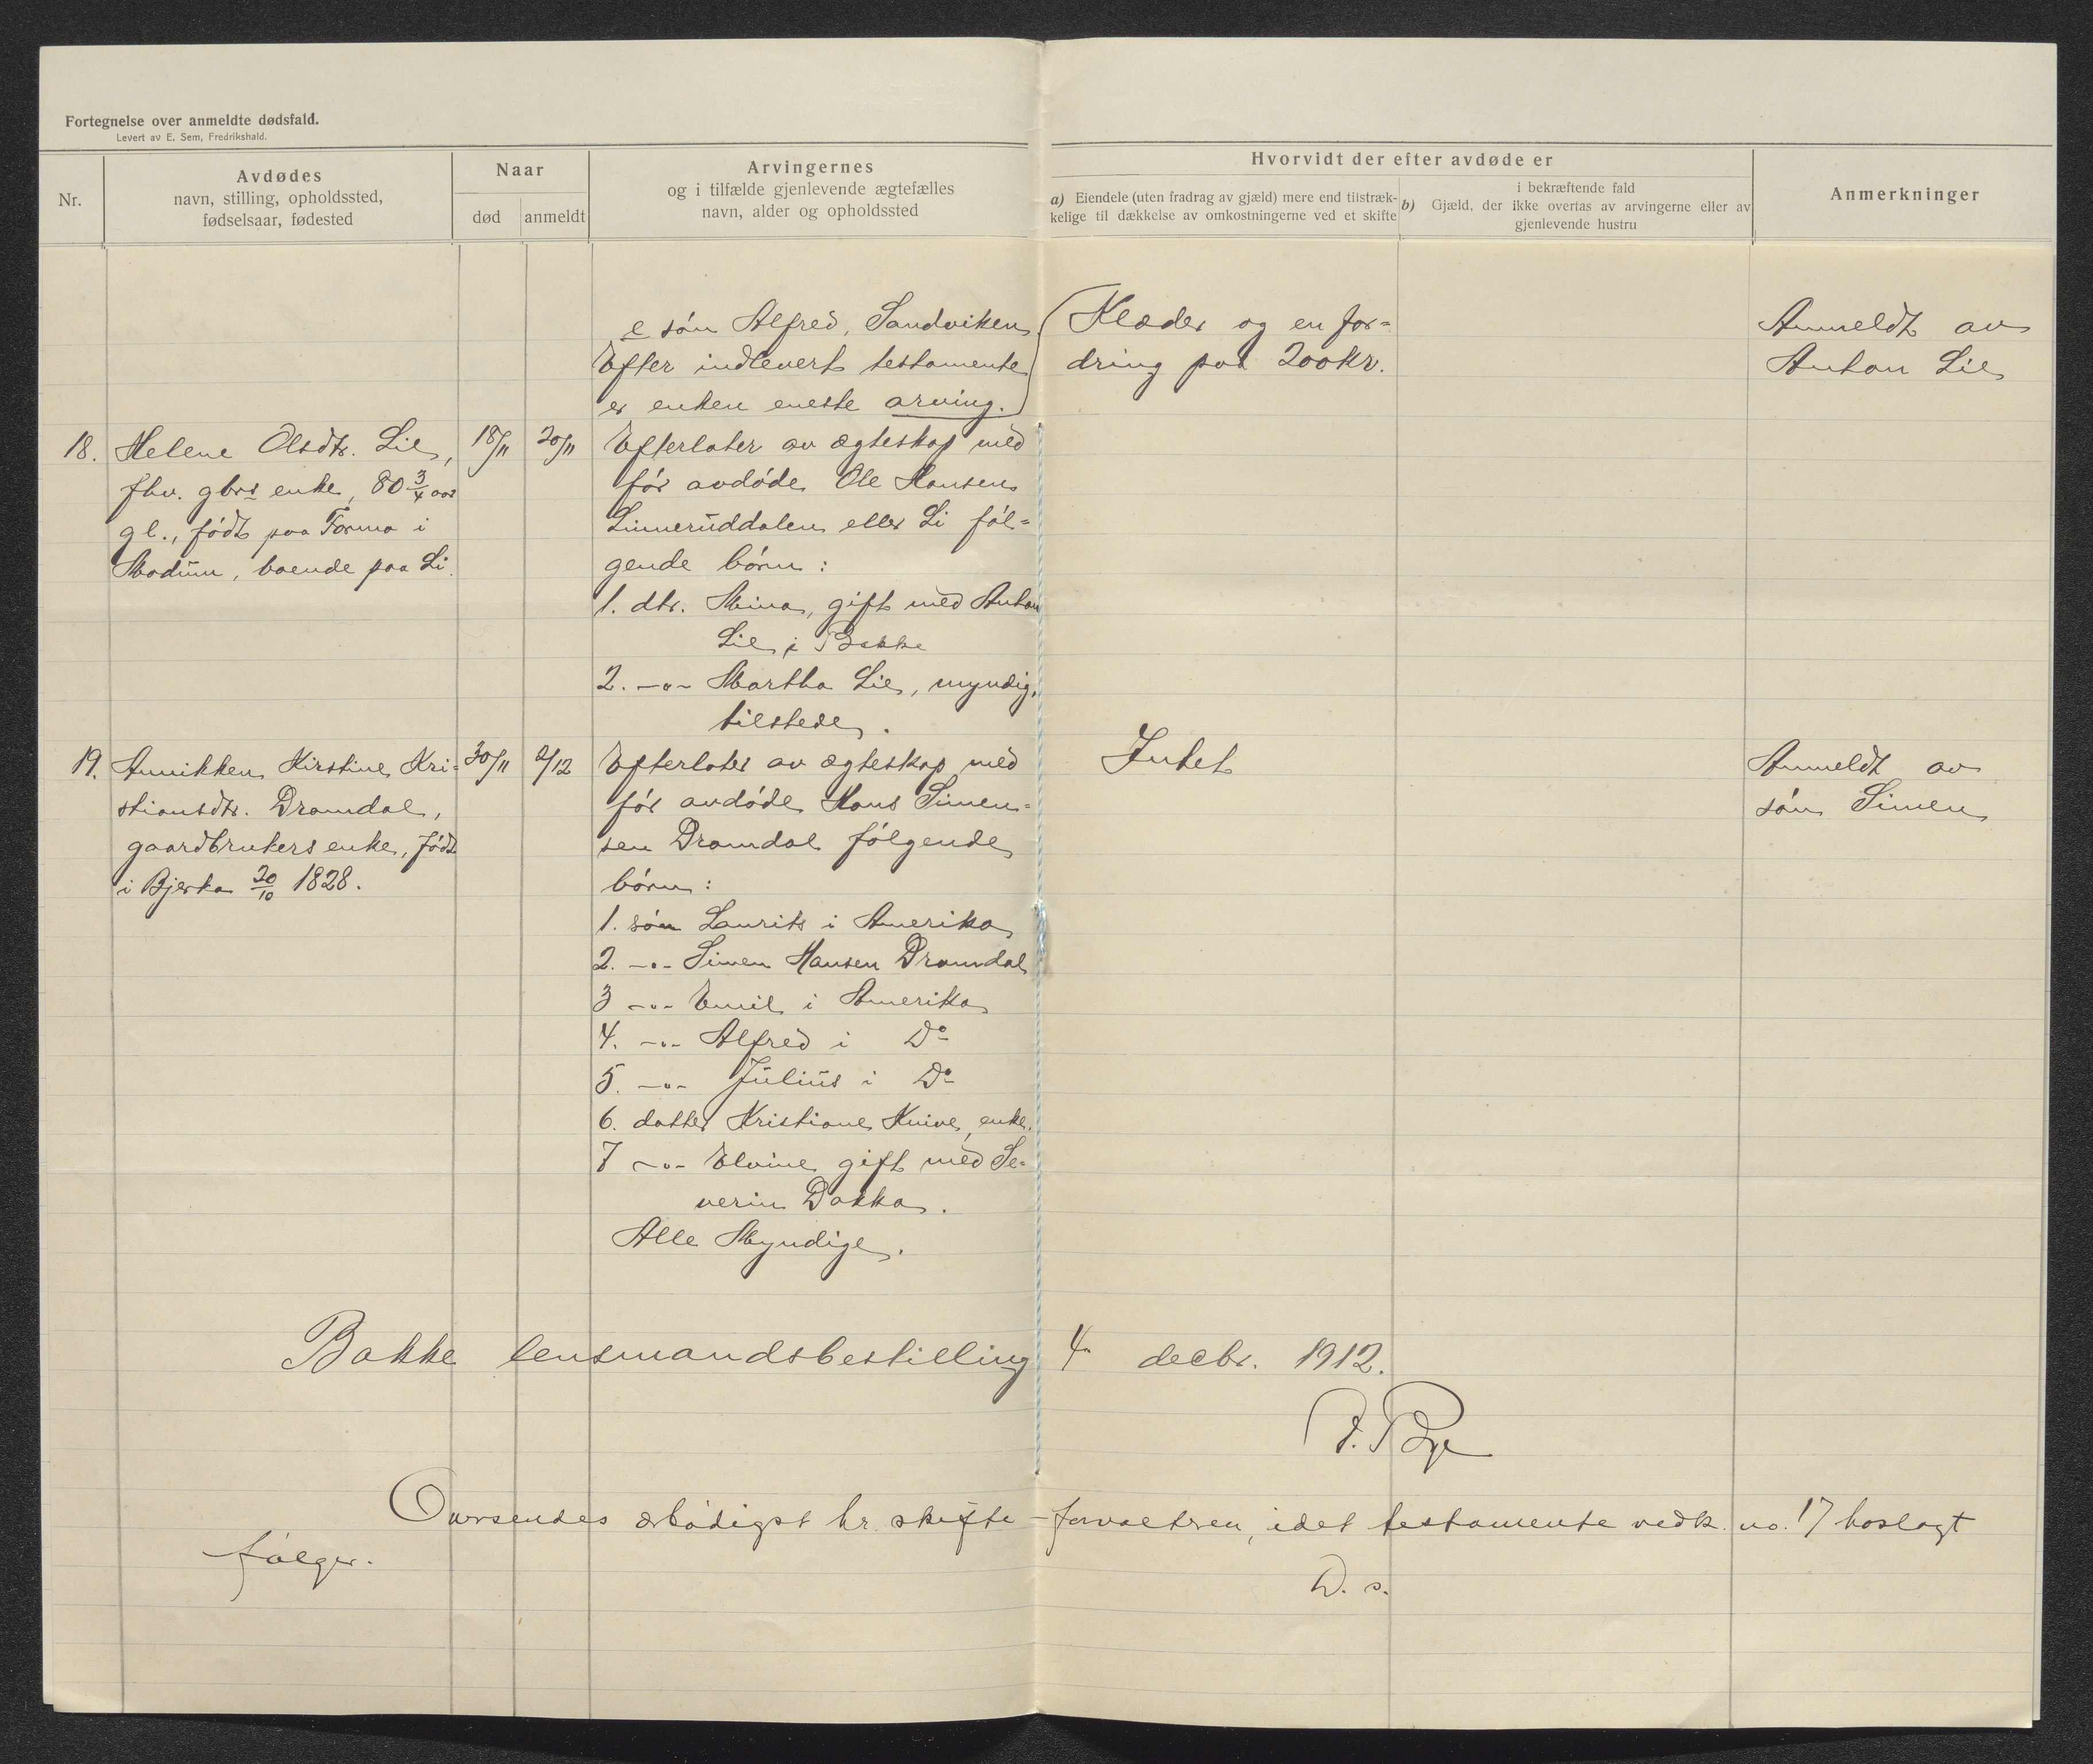 Fortegnelse over anmeldte dødsfald.
Levert av E. Sem, Fredrikshald.
Nr.
Avdødes
navn, stilling, opholdssted,
fødselsaar, fødested
Naar
død
anmeldt
Arvingernes
og i tilfælde gjenlevende ægtefælles
navn, alder og opholdssted
Hvorvidt der efter avdøde er
a) Eiendele (uten fradrag av gjæld) mere end tilstræk-
kelige til dækkelse av omkostningerne ved et skifte
i bekræftende fald
b) Gjæld, der ikke overtas av arvingerne eller av
gjenlevende hustru
Anmerkninger
e søn Alfred, Sandviken
Efter indlevert testamente
er enken eneste arving.
Klæder og en for=
dring paa 200 kr.
Anmeldt av
Anton Lie
18.
Helene Olsdtr. Lie,
fhv. gbrs enke, 80 3/4 aar
gl., født paa Formo i
Modum, boende paa Li.
18/11
20/11
Efterlater av ægteskap med
før avdøde Ole Hansen
Linneruddalen eller Li føl=
gende børn:
1. dtr. Mina, gift med Anton
Lie i Bakke
2. -"- Martha Lie, myndig,
tilstede.
19.
Annikken Kirstine Kri=
stiansdtr. Dramdal,
gaardbrukers enke, født
i Bjerka 20/10 1828.
30/11
2/12
Efterlater av ægteskap med
før avdøde Hans Simen=
sen Dramdal følgende
børn:
1. søn Laurits i Amerika
2. -"- Simen Hansen Dramdal
3 -"- Emil i Amerika
4. -"- Alfred i Do
5. -"- Julius i Do
6. datter Kristiane Knive, enke.
7 -"- Elvine gift med Se=
verin Dakka.
Alle Myndige.
Intet
Anmeldt av
søn Simen
Bakke lensmandsbestilling 4. decbr. 1912.
Bye
Oversendes ærbødigst hr. skifte-forvalteren, idet testamente vedk. no. 17 hoslagt
følger.
D. s.